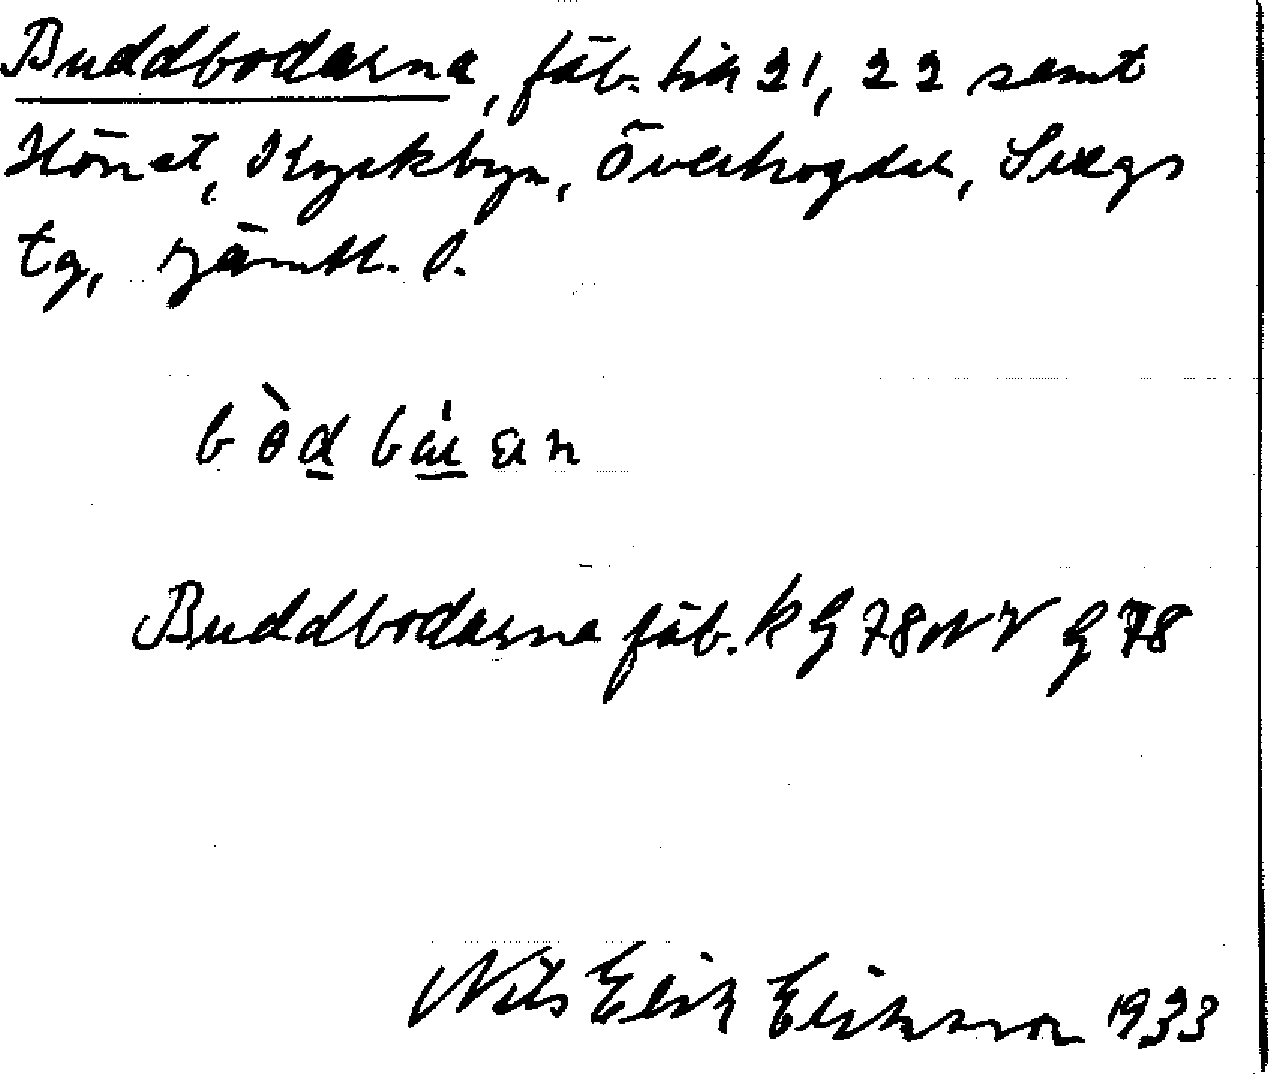 Buddbodarna, fäb. till 21, 22 samt
Hönet, Kyrkbyn, Överhogdal, Svegs
tg, Jämtl. l.
bèd
Buddbodarna fäb. k G 78 NV G 78
Nils Erik Eriksson 1933